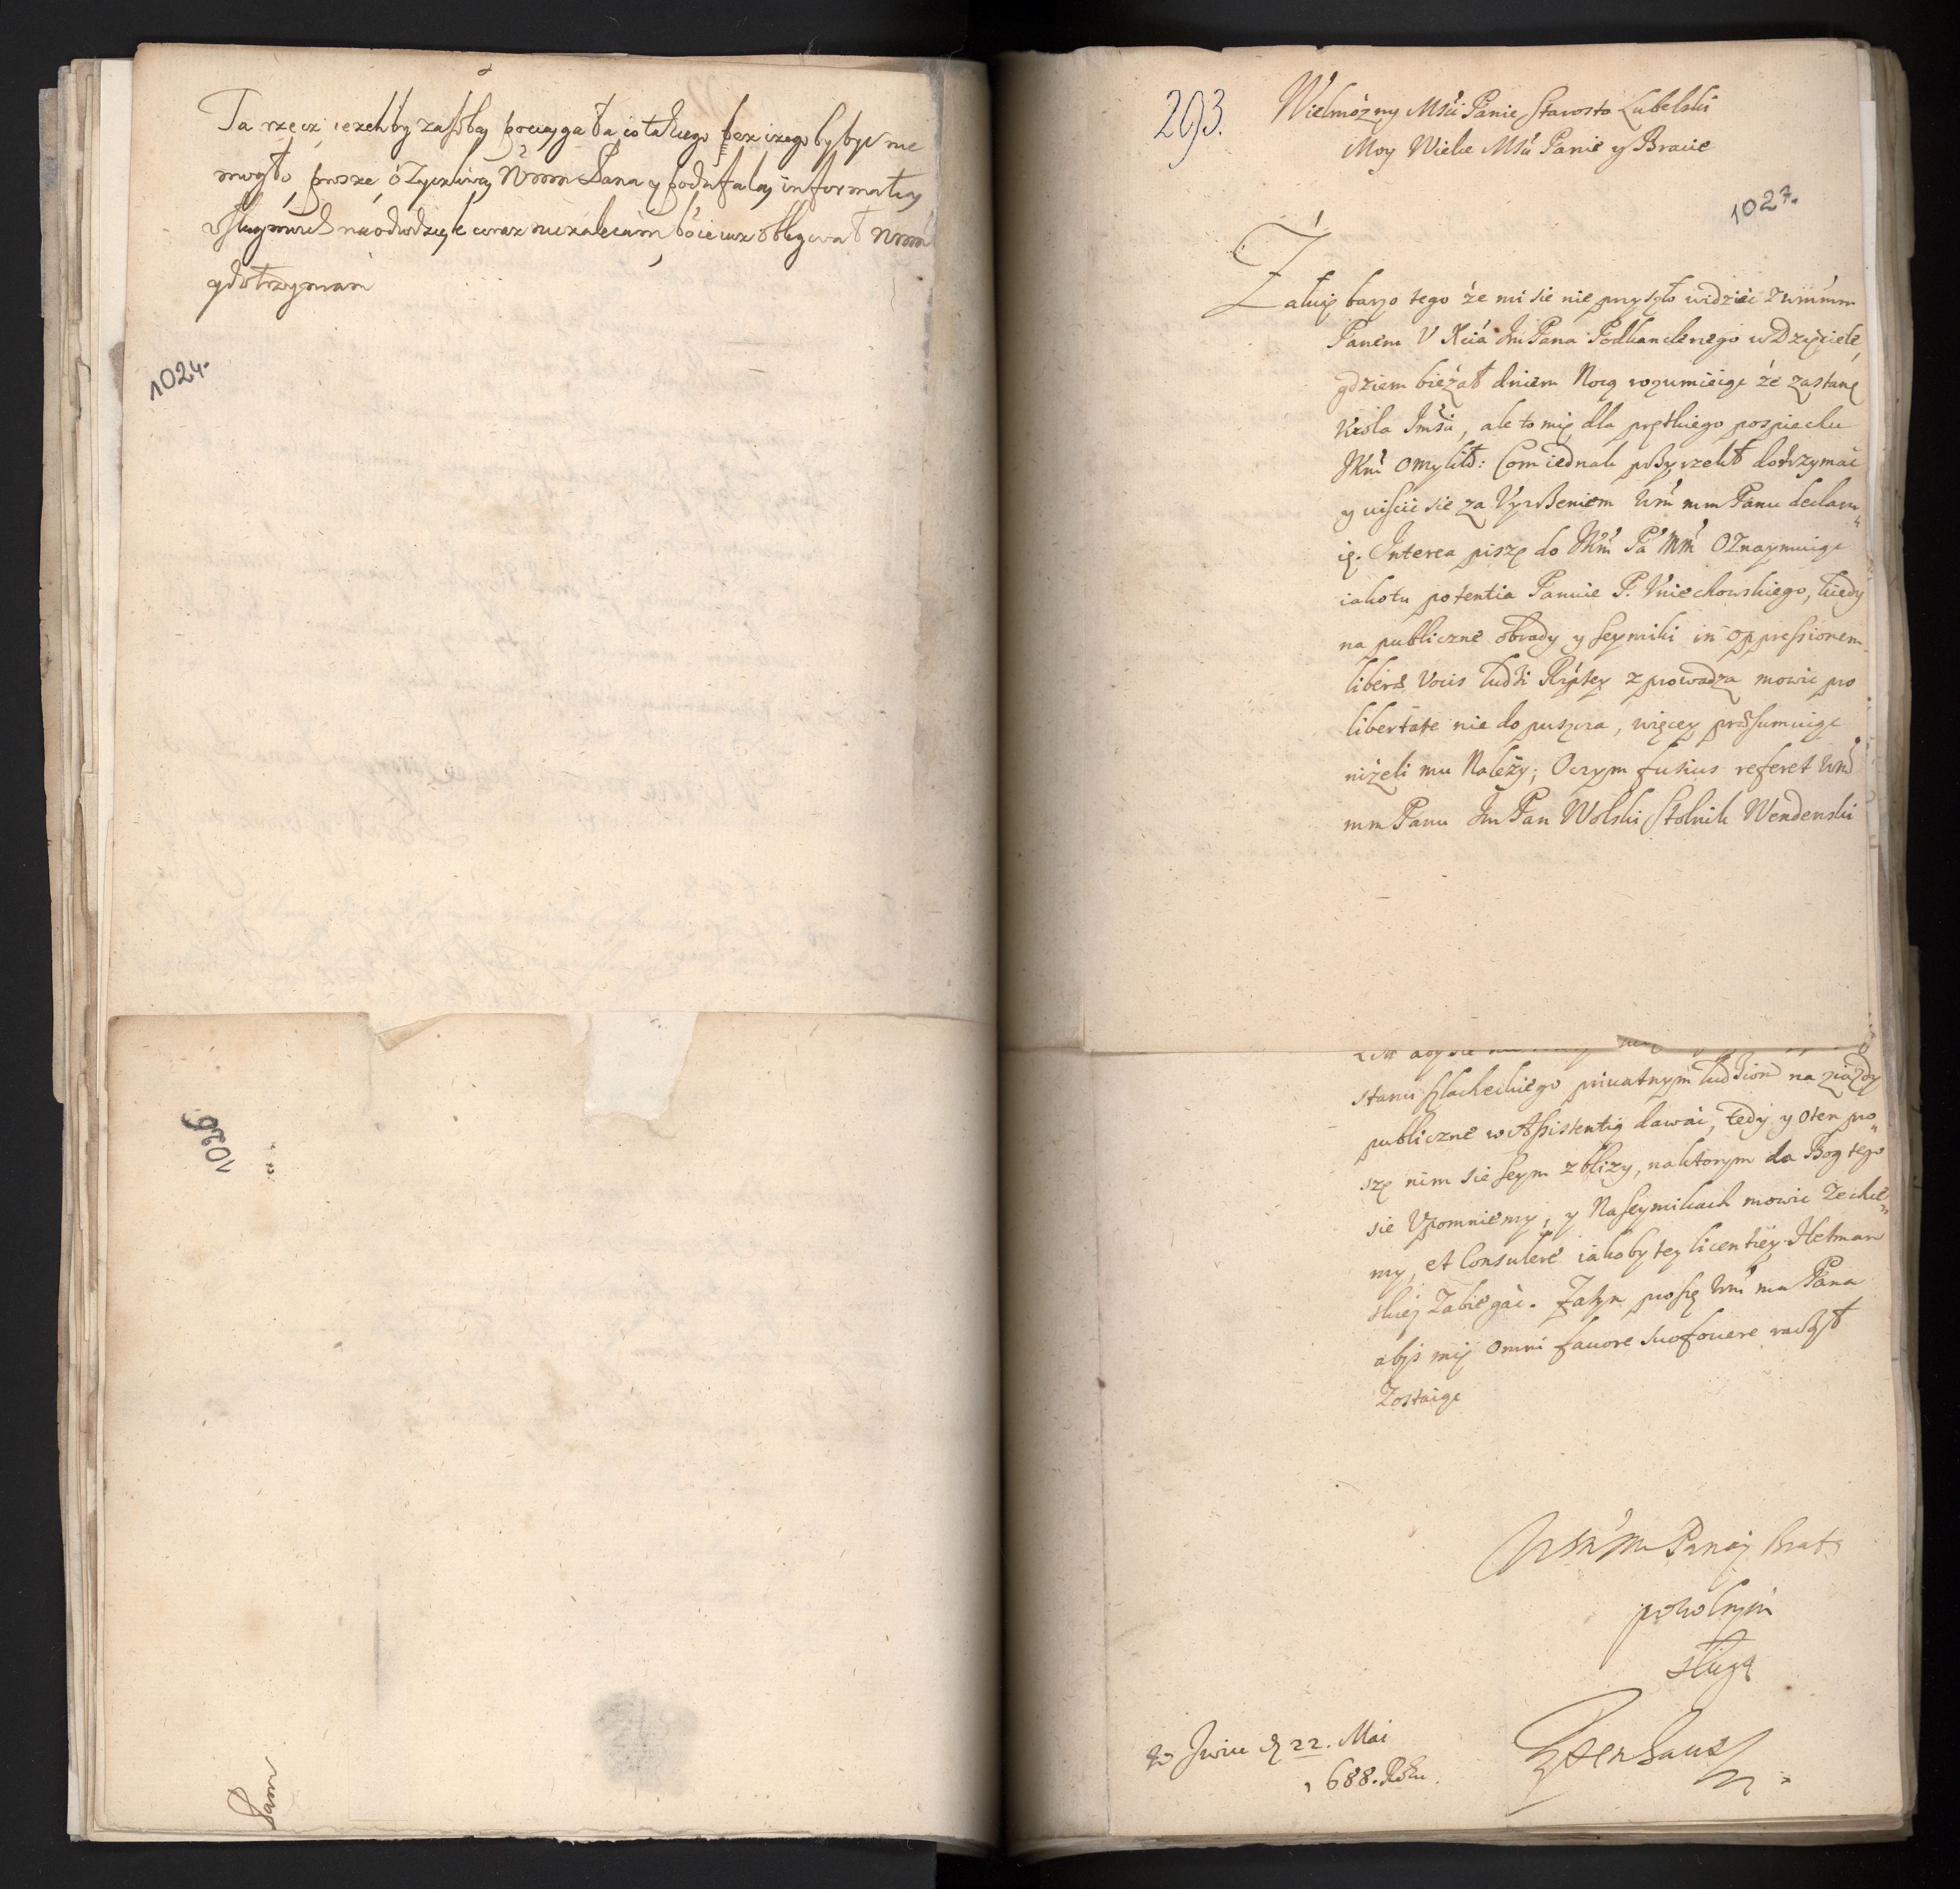 Ta rzecz iezeliby za sobą pociągała co takiego bez czego by bydz nie
mogło, proszę o zyczliwą Wmm Pana y poufałą informatią
gdotrzymam
1024.
1026
Pam
293.
Wielmozny Msći Panie Starosto Lubelski
Moy Wielce Msći Panie y Bracie
1027.
Załuię barzo tego że mi sie nie przyszło widzieć z wmmm
Panem U Xcia Jm Pana Podkanclerzego w Dzięciele,
gdziem bieżał dniem Nocą rozumieiąc że zastanę
Krola Jmsci, ale to mię dla prętkiego pospiechu
JKm omylilo: Com iednak przyrzekł dotrzymać
y uiscić sie za Vyrzeniem Wm mm Panu declaru„
ię. Interea piszę do Wm Pa mm Oznaymuiąc
iako tu potentia Panuie P. Kniechowskiego, kiedy
na publiczne obrady y seymiki in oppressionem
liberæ Vocis ludzi Rzptey z prowadza mowic pro
libertate nie dopuszcza, więcey præsumuiąc
niżeli mu Należy; Oczym fusius referet Wm
mm Panu Jm Pan Wolski Stolnik Wendenski
stanu szlacheckiego priuatnym ludziom na ziazdy
publiczne w Assistentią dawać, tedy y o ten pro„
szę nim sie seym zblizy, na ktorym da Bog tego
sie Vpomniemy, y Na seymikach mowic Zechce„
my, et Consulere iakoby tey licentiey Hetman
skiey Zabiegać. Zatym proszę Wm mm Pana
abyś mię omni fauore suo fouere raczył
Zostaię
Wm mm Pana y Brata
powolnym
sługą
w Iwiu d 22. Mai
1688. Roku.